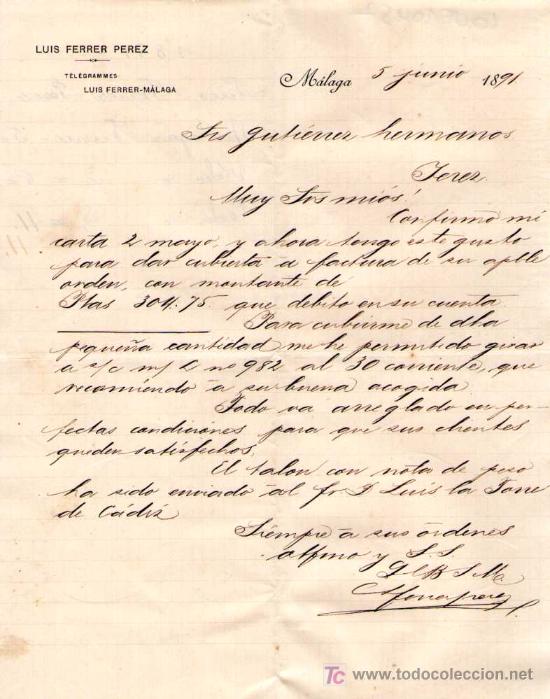 LUIS FERRER PEREZ
TÉLÉGRAMMES
LUIS FERRER-MÁLAGA
Málaga 5 junio 1891
Srs Gutiérrez hermanos
Jerez
Muy Srs mios!
Confirmo mi
carta 2 mayo, y ahora tengo este gusto
para dar cubierta a factura de su apble
orden, con montante de
Ptas 304.75 que debito en su cuenta
Para cubrirme de dha
pequeña cantidad me he permitido girar
a s/c m/ L no 982 al 30 corriente, que
recomiendo à su buena acogida
Todo va arreglado en per-
fectas condiciones para que sus clientes
queden satisfechos.
El talon con nota de peso
ha sido enviado al Sr D Luis la Torre
de Cádiz
Siempre à sus órdenes
affmo y S. S.
Q B S M
tc www.todocoleccion.net